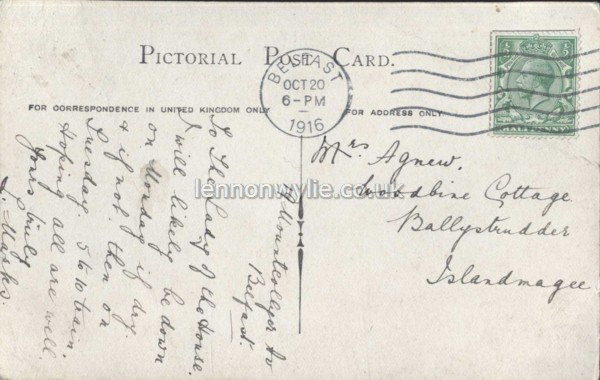 PICTORIAL POST CARD.
BELFAST
OCT 20
6-PM
1916
HALFPENNY
FOR CORRESPONDENCE IN UNITED KINGDOM ONLY
FOR ADDRESS ONLY
Mountcollyer Av
Belfast.
To The Lady of the House.
I will likely be down
on Monday if dry
& if not then on
Tuesday. 5 to 10 train.
Hoping all are well.
Yours truly
Marks.
Mrs Agnew.
Woodbine Cottage
Ballystrudder
Islandmagee
lennonwylie.co.uk